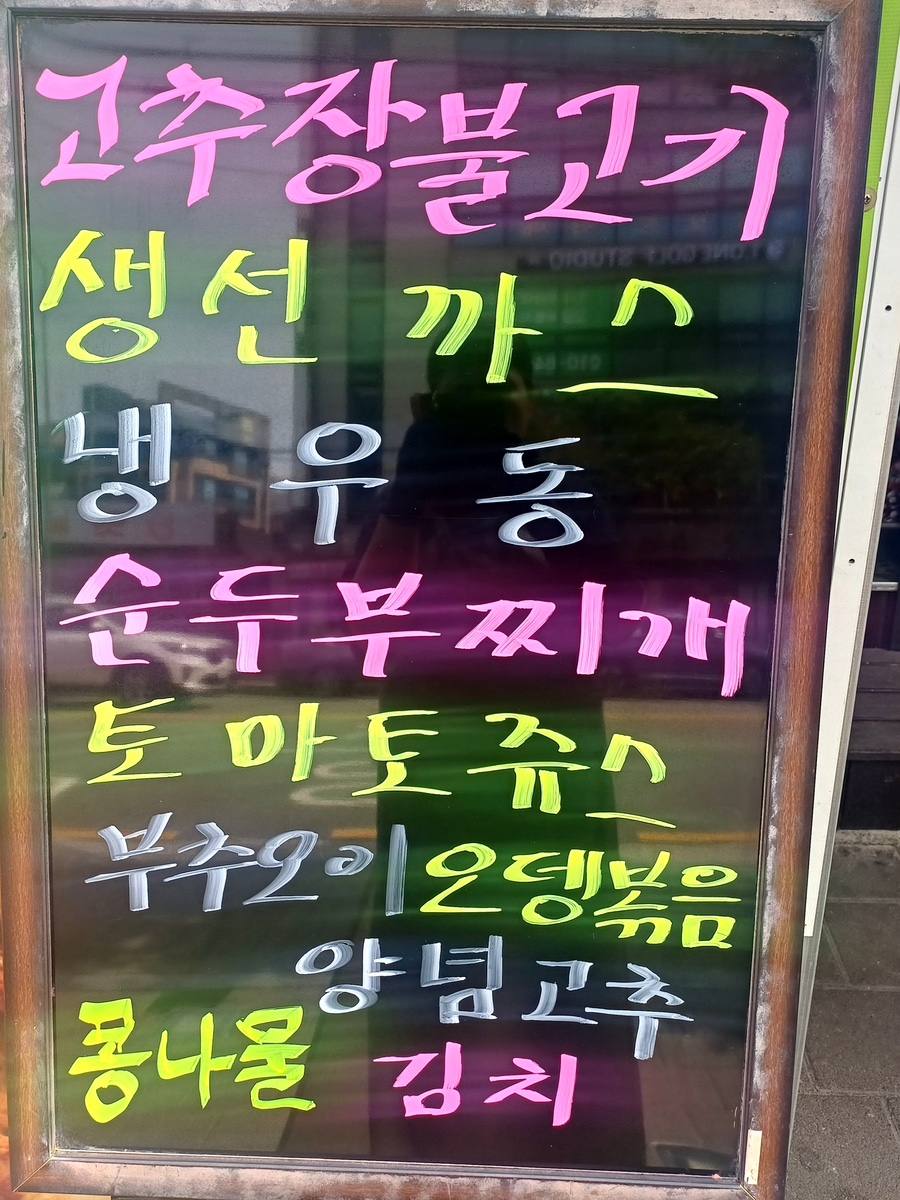 고추장불고기
생선까스
냉우동
순두부찌개
토마토쥬스
부추오이 오뎅볶음
양념고추
콩나물 김치